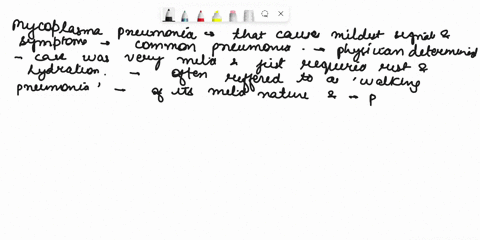 mycoplasma pneumonia → that cause mildest signal &
symptoms → common pneumonis. → physican determined
- case was very meld & jist required rest &
hydration. → often reffered to a 'walking
pneumonis' → of its meld nature & → p